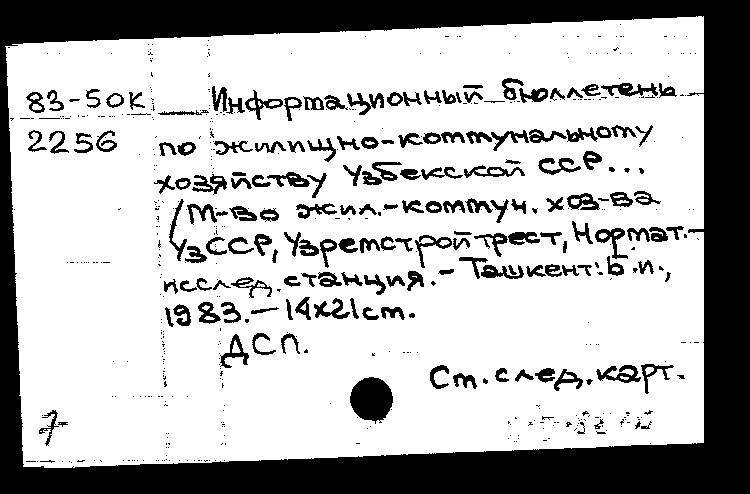 83-50К Информационный бюллетень
2256 по жилищно-коммунальному
хозяйству Узбекской ССР...
/М-во жил.-коммун. хоз-ва
УзССР, Узремстройтрест, Нормат.-
исслед. станция.- Ташкент: Б.и.,
1983.- 14х21см.
ДСП.
См. след. карт.
7